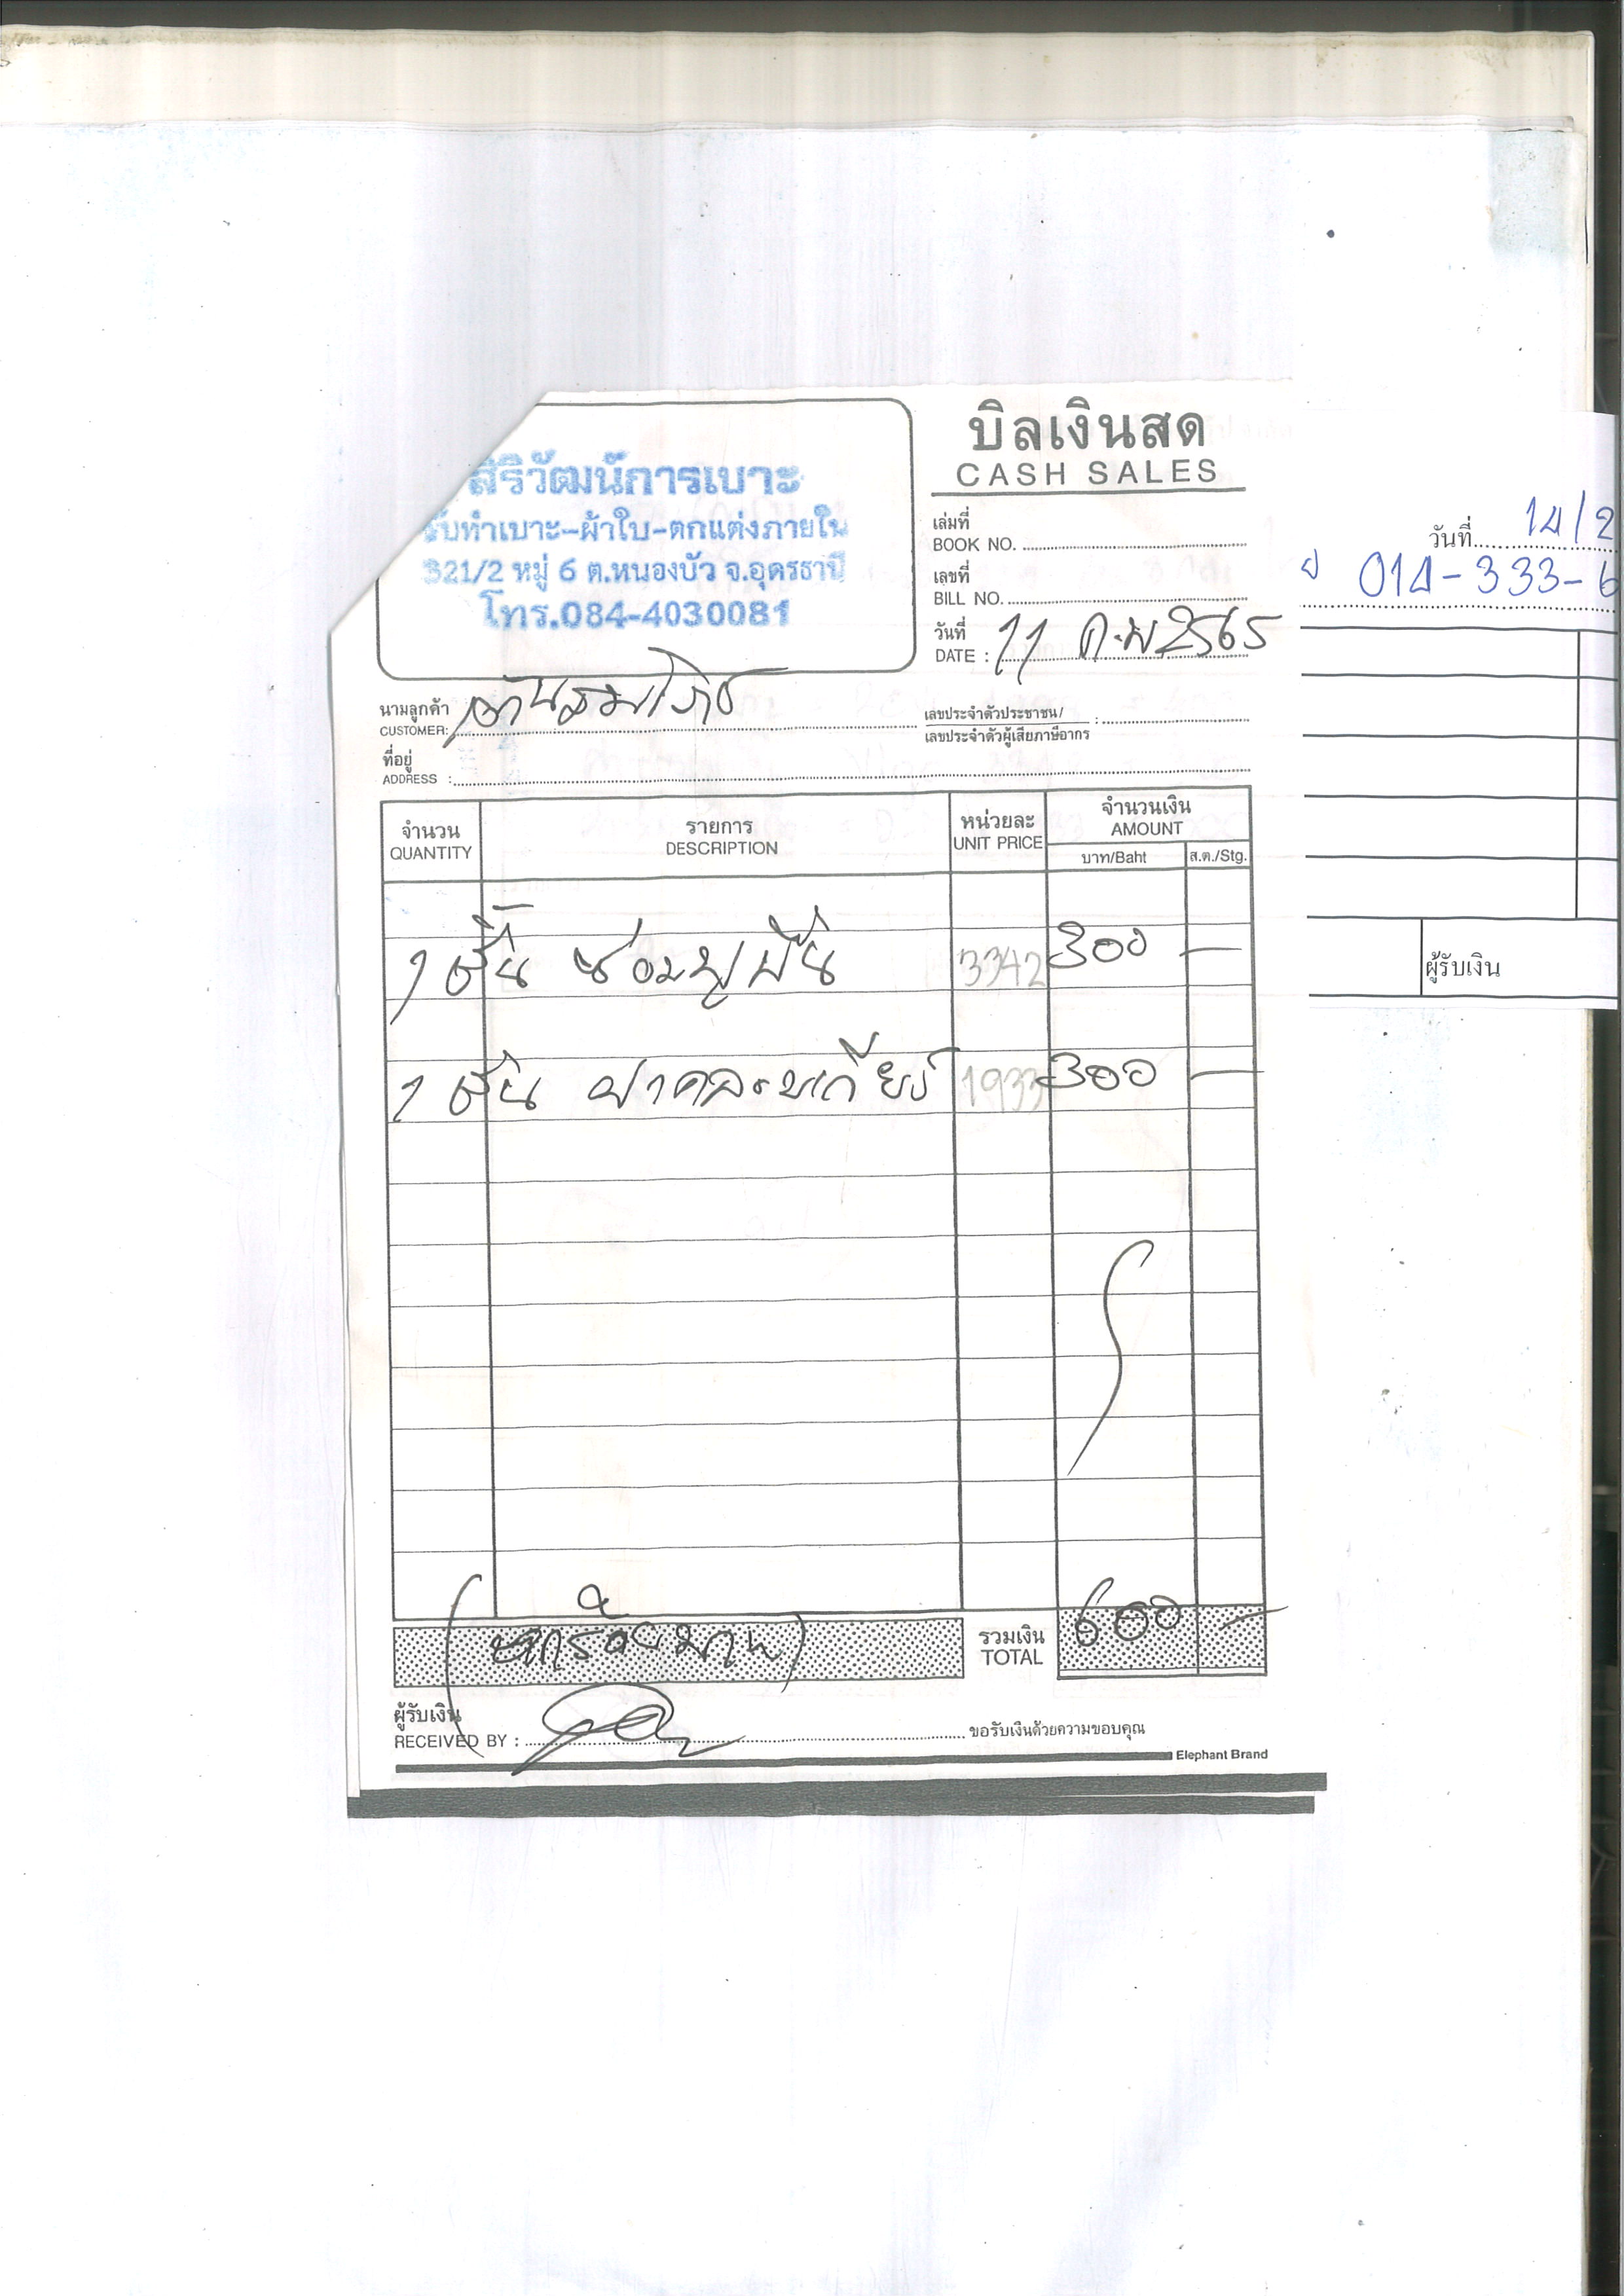 บิลเงินสด
CASH SALES
สิริวัฒน์การเบาะ
รับทำเบาะ-ผ้าใบ-ตกแต่งภายใน
321/2 หมู่ 6 ต.หนองบัว จ.อุดรธานี
โทร.084-4030081
เล่มที่
BOOK NO.
เลขที่
BILL NO.
วันที่
DATE : 11 ก.พ 2565
นามลูกค้า
CUSTOMER:
เลขประจำตัวประชาชน/
เลขประจำตัวผู้เสียภาษีอากร :
ที่อยู่
ADDRESS :
จำนวน รายการ หน่วยละ จำนวนเงิน
QUANTITY DESCRIPTION UNIT PRICE AMOUNT
บาท/Baht ส.ต./Stg.
1 ชิ้น ซ่อม 3342 300 -
1 ชิ้น 1933 300 -
(หกร้อย) รวมเงิน 600 -
TOTAL
ผู้รับเงิน
RECEIVED BY : ขอรับเงินด้วยความขอบคุณ
Elephant Brand
วันที่ 14/2
014-333-6
ผู้รับเงิน